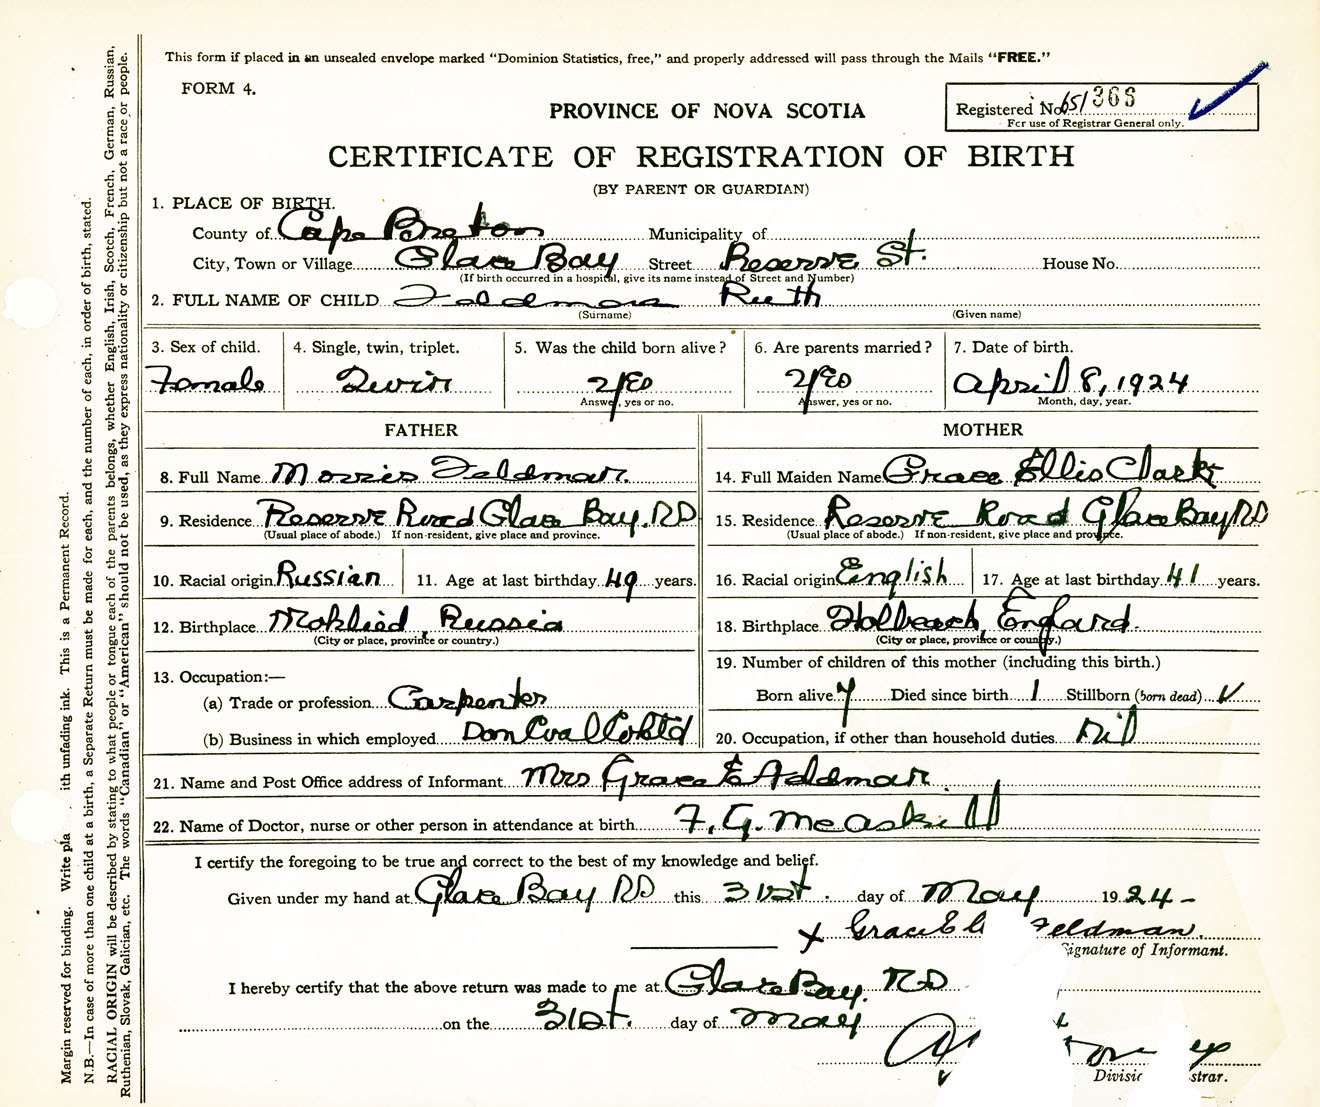 This form if placed in an unsealed envelope marked "Dominion Statistics, free," and properly addressed will pass through the Mails "FREE."
FORM 4.
PROVINCE OF NOVA SCOTIA
Registered No. 651368
For use of Registrar General only.
CERTIFICATE OF REGISTRATION OF BIRTH
(BY PARENT OR GUARDIAN)
1. PLACE OF BIRTH.
County of Cape Breton Municipality of
City, Town or Village Glace Bay Street Reserve St. House No.
(If birth occurred in a hospital, give its name instead of Street and Number)
2. FULL NAME OF CHILD Feldman Ruth
(Surname) (Given name)
3. Sex of child. 4. Single, twin, triplet. 5. Was the child born alive? 6. Are parents married? 7. Date of birth.
Female Twin yes yes April 8, 1924
Answer, yes or no. Answer, yes or no. Month, day, year.
FATHER MOTHER
8. Full Name Morris Feldman. 14. Full Maiden Name Grace Ellis Clark
9. Residence Reserve Road Glace Bay. RD 15. Residence Reserve Road Glace Bay RD
(Usual place of abode.) If non-resident, give place and province. (Usual place of abode.) If non-resident, give place and province.
10. Racial origin Russian 11. Age at last birthday 49 years. 16. Racial origin English 17. Age at last birthday 41 years.
12. Birthplace Russia 18. Birthplace Holbeach, England.
(City or place, province or country.) (City or place, province or country.)
13. Occupation:— 19. Number of children of this mother (including this birth.)
(a) Trade or profession Carpenter Born alive 7 Died since birth 1 Stillborn (born dead)
(b) Business in which employed Dom Coal Co Ltd 20. Occupation, if other than household duties Nil
21. Name and Post Office address of Informant Mrs Grace E Feldman
22. Name of Doctor, nurse or other person in attendance at birth F. G. Measkill
I certify the foregoing to be true and correct to the best of my knowledge and belief.
Given under my hand at Glace Bay RD this 31st. day of May 1924-
X Grace Feldman.
Signature of Informant.
I hereby certify that the above return was made to me at Glace Bay. RD
on the 31st. day of May
Margin reserved for binding. This is a Permanent Record.
N.B.—In case of more than one child at a birth, a Separate Return must be made for each, and the number of each, in order of birth, stated.
RACIAL ORIGIN will be described by stating to what people or tongue each of the parents belongs, whether English, Irish, Scotch, French, German, Russian,
Ruthenian, Slovak, Galician, etc. The words "Canadian" or "American" should not be used, as they express nationality or citizenship but not a race or people.